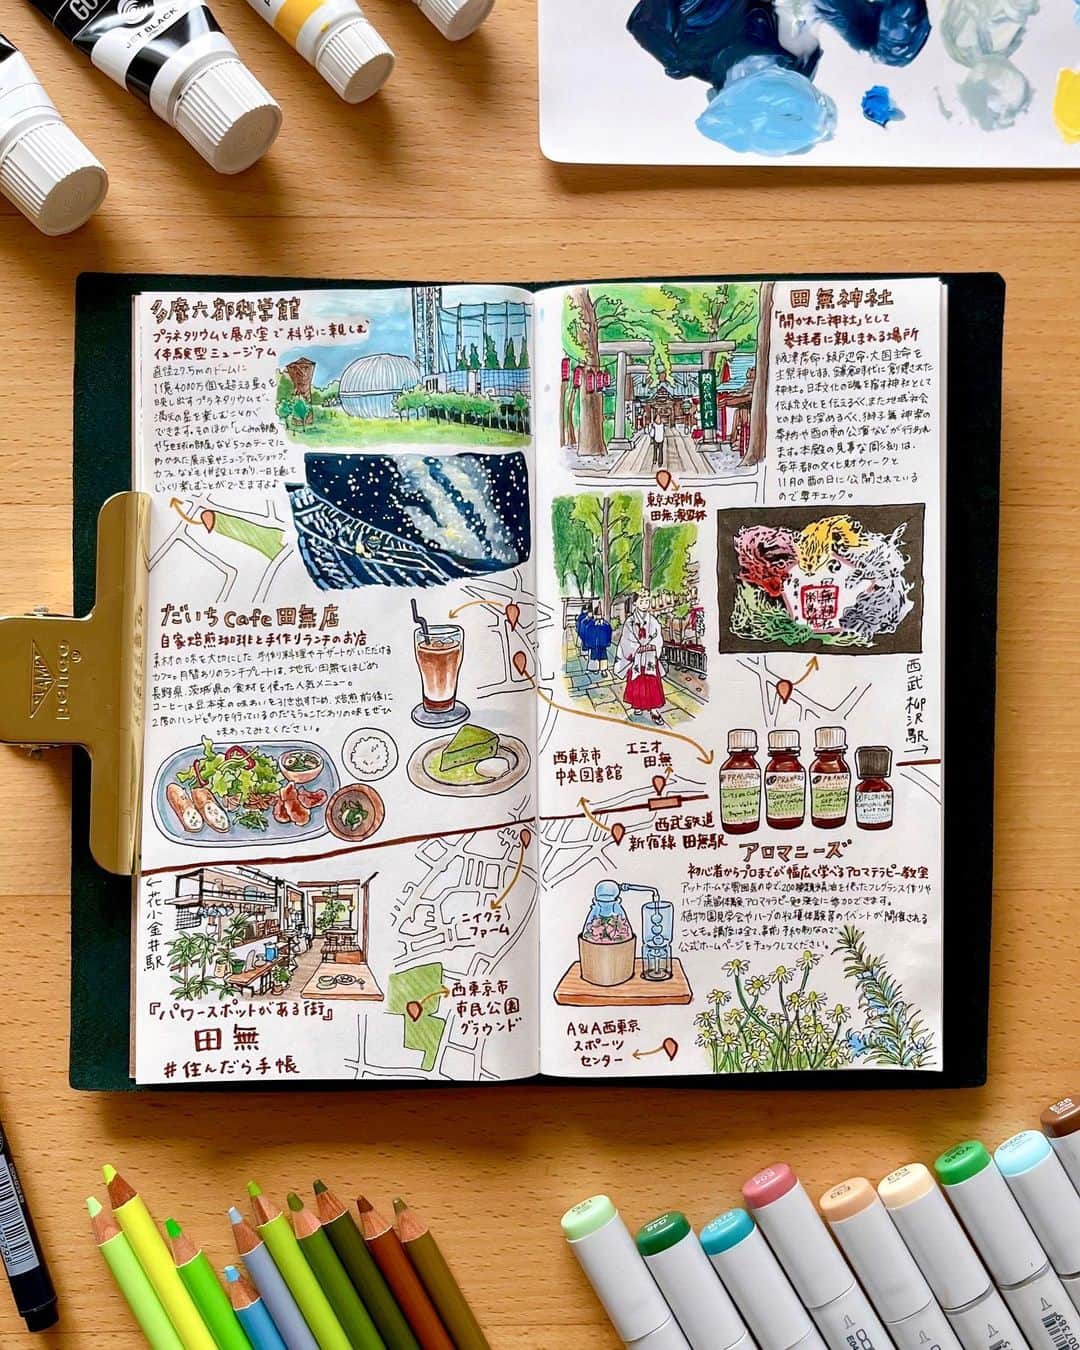 JET BLACK
多摩六都科学館
プラネタリウムと展示室で科学に親しむ
体験型ミュージアム
直径27.5mのドームに
1億4000万個を超える星々を
映し出すプラネタリウムで、
満天の星を楽しむことが
できます。そのほか「しくみの部屋」
や「地球の部屋」など5つのテーマに
わかれた展示室やミュージアムショップ
カフェなども併設しており、一日を通して
じっくり楽しむことができますよ♪
だいちcafe田無店
自家焙煎珈琲と手作りランチのお店
素材の味を大切にした手作り料理やデザートがいただける
カフェ。月替わりのランチプレートは、地元・田無をはじめ
長野県、茨城県の食材を使った人気メニュー。
コーヒーは豆本来の味わいを引き出すため、焙煎前後に
2度のハンドピックを行っているのだそう☆こだわりの味をぜひ
味わってみてください。
penco
®
←花小金井駅
ニイクラ
ファーム
西東京市
市民公園
グラウンド
『パワースポットがある街』
田無
#住んだら手帳
田無神社
「開かれた神社」として
参拝者に親しまれる場所
級津彦命・級戸辺命・大国主命を
主祭神とする、鎌倉時代に創建された
神社。日本文化の魂を宿す神社として
伝統文化を伝えるべく、また地域社会
との絆を深めるべく、獅子舞 神楽の
奉納や酉の市の公演などが行われ
ます。本殿の見事な彫刻は、
毎年都の文化財ウィークと
11月の酉の日に公開されている
ので要チェック。
東京大学附属
田無演習林
西武柳沢駅→
西東京市
中央図書館
エミオ
田無
西武鉄道
新宿線 田無駅
PRANAR
PRANAR
PRANAR
アロマニーズ
初心者からプロまでが幅広く学べるアロマテラピー教室
アットホームな雰囲気の中で、200種類の精油を使ったフレグランス作りや
ハーブ蒸留体験、アロマテラピー勉強会に参加できます。
植物園見学会やハーブの収穫体験等のイベントが開催される
ことも。講座は全て事前予約制なので
公式ホームページをチェックしてください。
A&A西東京
スポーツ
センター
E53
E25